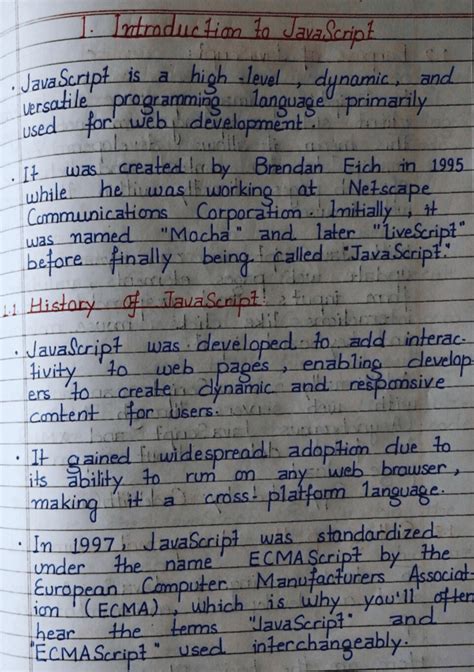 1. Introduction to JavaScript
• JavaScript is a high-level, dynamic, and
versatile programming language primarily
used for web development.
• It was created by Brendan Eich in 1995
while he was working at Netscape
Communications Corporation. Initially, it
was named "Mocha" and later "LiveScript"
before finally being called "JavaScript."
1.1 History of JavaScript:
• JavaScript was developed to add interac-
tivity to web pages, enabling develop-
ers to create dynamic and responsive
content for users.
• It gained widespread adoption due to
its ability to run on any web browser,
making it a cross-platform language.
• In 1997, JavaScript was standardized
under the name ECMAScript by the
European Computer Manufacturers Associat-
ion (ECMA), which is why you'll often
hear the terms "JavaScript" and
"ECMAScript" used interchangeably.